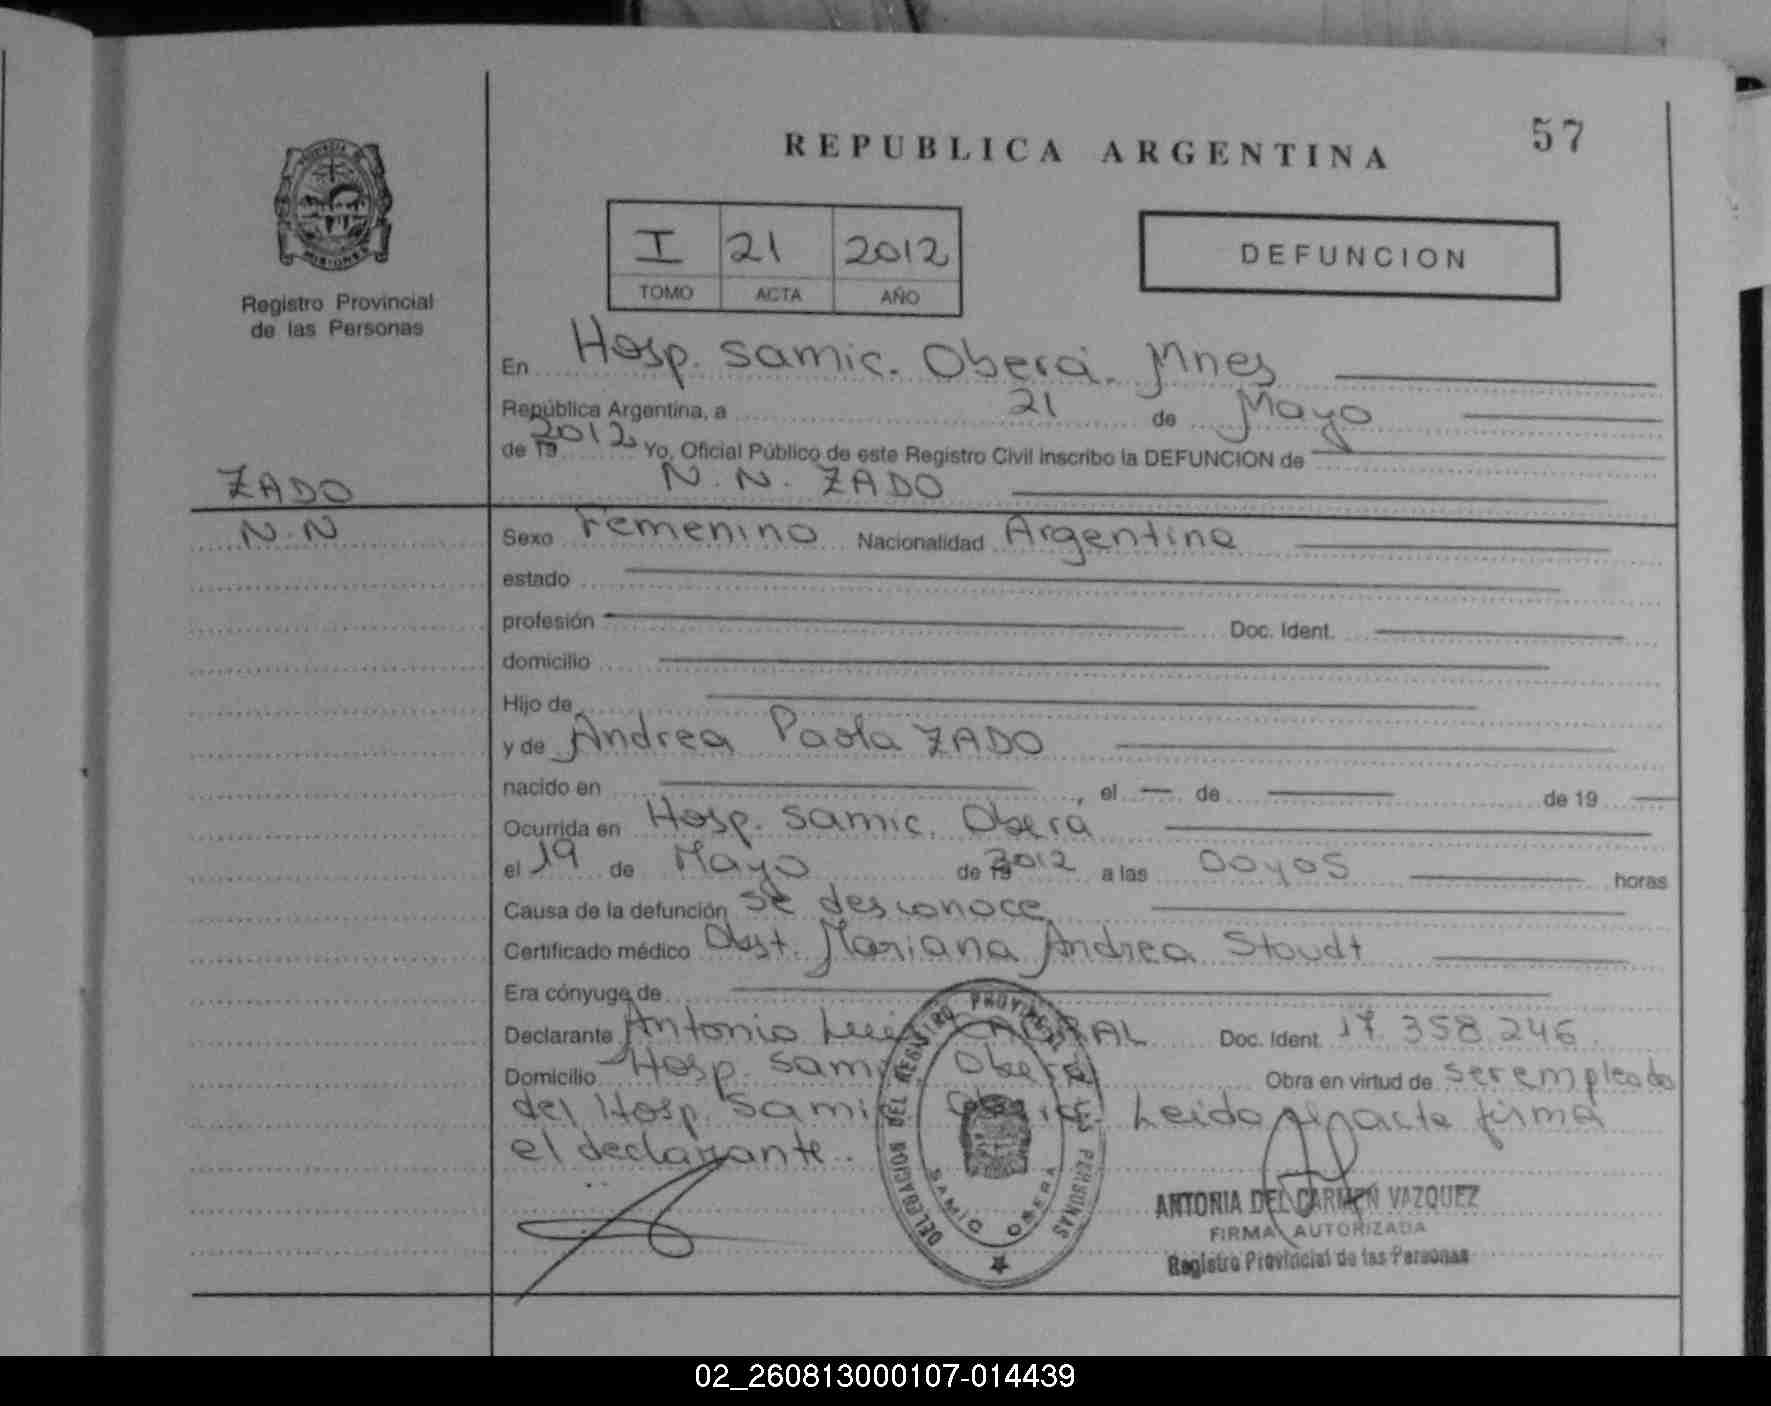 57
REPUBLICA ARGENTINA
PROVINCIA DE
MISIONES
Registro Provincial
de las Personas
I 21 2012
TOMO ACTA AÑO
DEFUNCION
En Hosp. Samic. Oberá. Mnes
República Argentina, a 21 de Mayo
de 19 2012 Yo, Oficial Público de este Registro Civil inscribo la DEFUNCION de
N. N. ZADO
ZADO
N. N
Sexo Femenino Nacionalidad Argentina
estado
profesión Doc. Ident.
domicilio
Hijo de
y de Andrea Paola ZADO
nacido en , el de de 19
Ocurrida en Hosp. Samic. Oberá
el 19 de Mayo de 19 2012 a las 00y05 horas
Causa de la defunción se desconoce
Certificado médico Obst. Mariana Andrea Stoudt
Era cónyuge de
Declarante Antonio Luis CABRAL Doc. Ident. 17.358.246.
Domicilio Hosp. Samic Oberá Obra en virtud de ser empleado
del Hosp. Samic Oberá. Leida el acta firma
el declarante.
DELEGACION DEL REGISTRO PROVINCIAL DE LAS PERSONAS
SAMIC OBERA
ANTONIA DEL CARMEN VAZQUEZ
FIRMA AUTORIZADA
Registro Provincial de las Personas
02_260813000107-014439